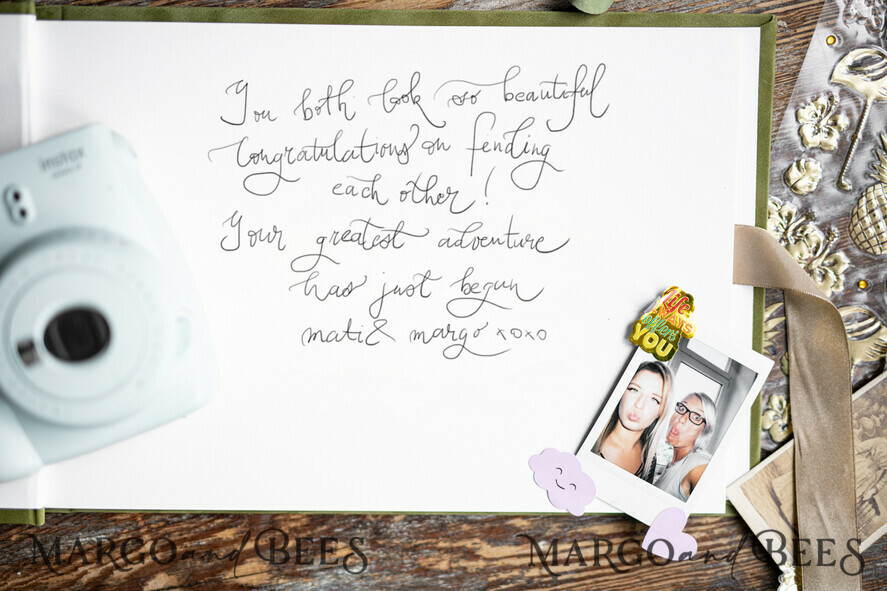 You both look so beautiful
Congratulations on finding
each other!
Your greatest adventure
has just begun
mati & margo xoxo
instax
life
always
offers
YOU
MARGO and BEES
MARGO and BEES